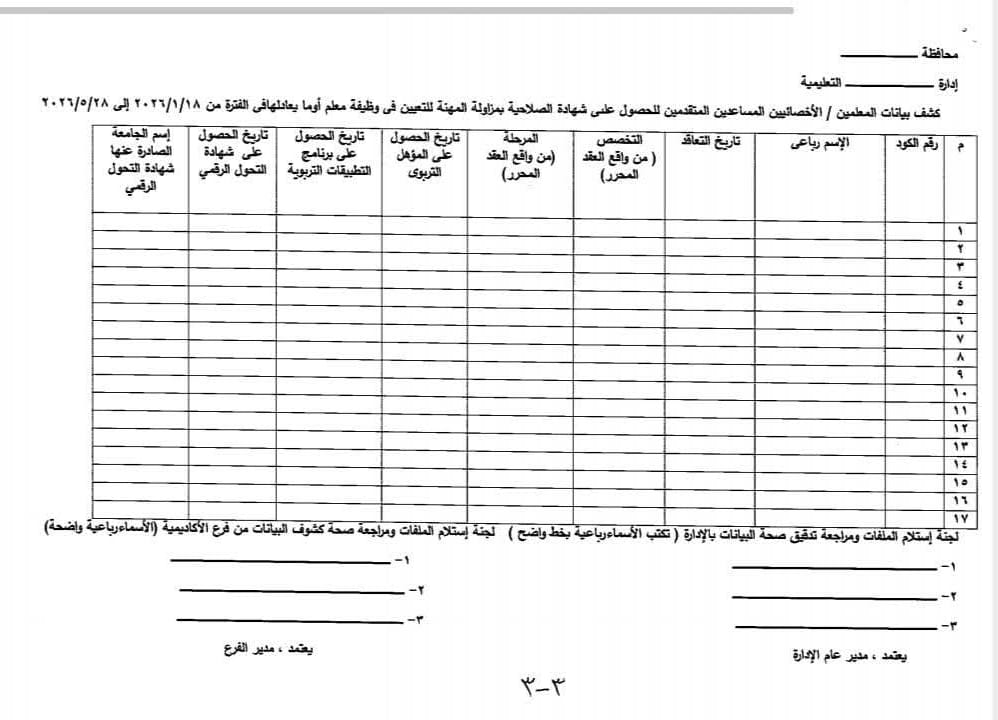 محافظة
إدارة التعليمية
كشف بيانات المعلمين / الأخصائيين المساعدين المتقدمين للحصول على شهادة الصلاحية بمزاولة المهنة للتعيين فى وظيفة معلم أوما يعادلهافى الفترة من ٢٠٢٦/١/١٨ إلى ٢٠٢٦/٥/٢٨
م
رقم الكود
الإسم رباعى
تاريخ التعاقد
التخصص
( من واقع العقد
المحرر)
المرحلة
(من واقع العقد
المحرر)
تاريخ الحصول
على المؤهل
التربوى
تاريخ الحصول
على برنامج
التطبيقات التربوية
تاريخ الحصول
على شهادة
التحول الرقمي
إسم الجامعة
الصادرة عنها
شهادة التحول
الرقمي
١
٢
٣
٤
٥
٦
٧
٨
٩
١٠
١١
١٢
١٣
١٤
١٥
١٦
١٧
لجنة إستلام الملفات ومراجعة تدقيق صحة البيانات بالإدارة ( تكتب الأسماءرباعية بخط واضح )
لجنة إستلام الملفات ومراجعة صحة كشوف البيانات من فرع الأكاديمية (الأسماءرباعية واضحة)
١-
٢-
٣-
يعتمد ، مدير عام الإدارة
١-
٢-
٣-
يعتمد ، مدير الفرع
٣-٣